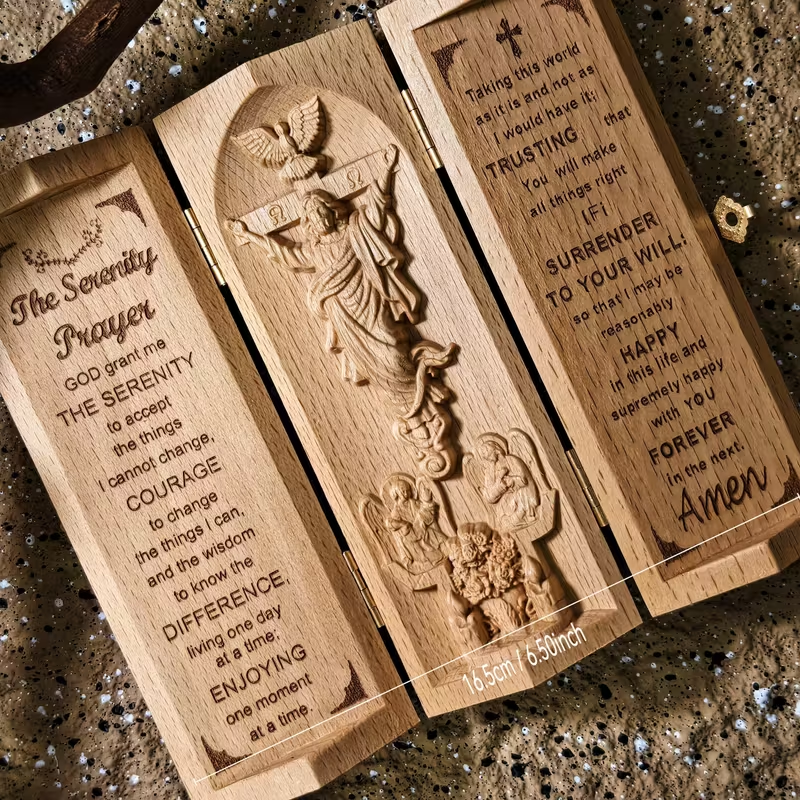 The Serenity
Prayer
GOD grant me
THE SERENITY
to accept
the things
I cannot change,
COURAGE
to change
the things I can,
and the wisdom
to know the
DIFFERENCE,
living one day
at a time;
ENJOYING
one moment
at a time.
Taking this world
as it is and not as
I would have it;
TRUSTING that
You will make
all things right
IFi
SURRENDER
TO YOUR WILL:
so that I may be
reasonably
HAPPY
in this life and
supremely happy
with YOU
FOREVER
in the next.
Amen
16.5cm / 6.50inch